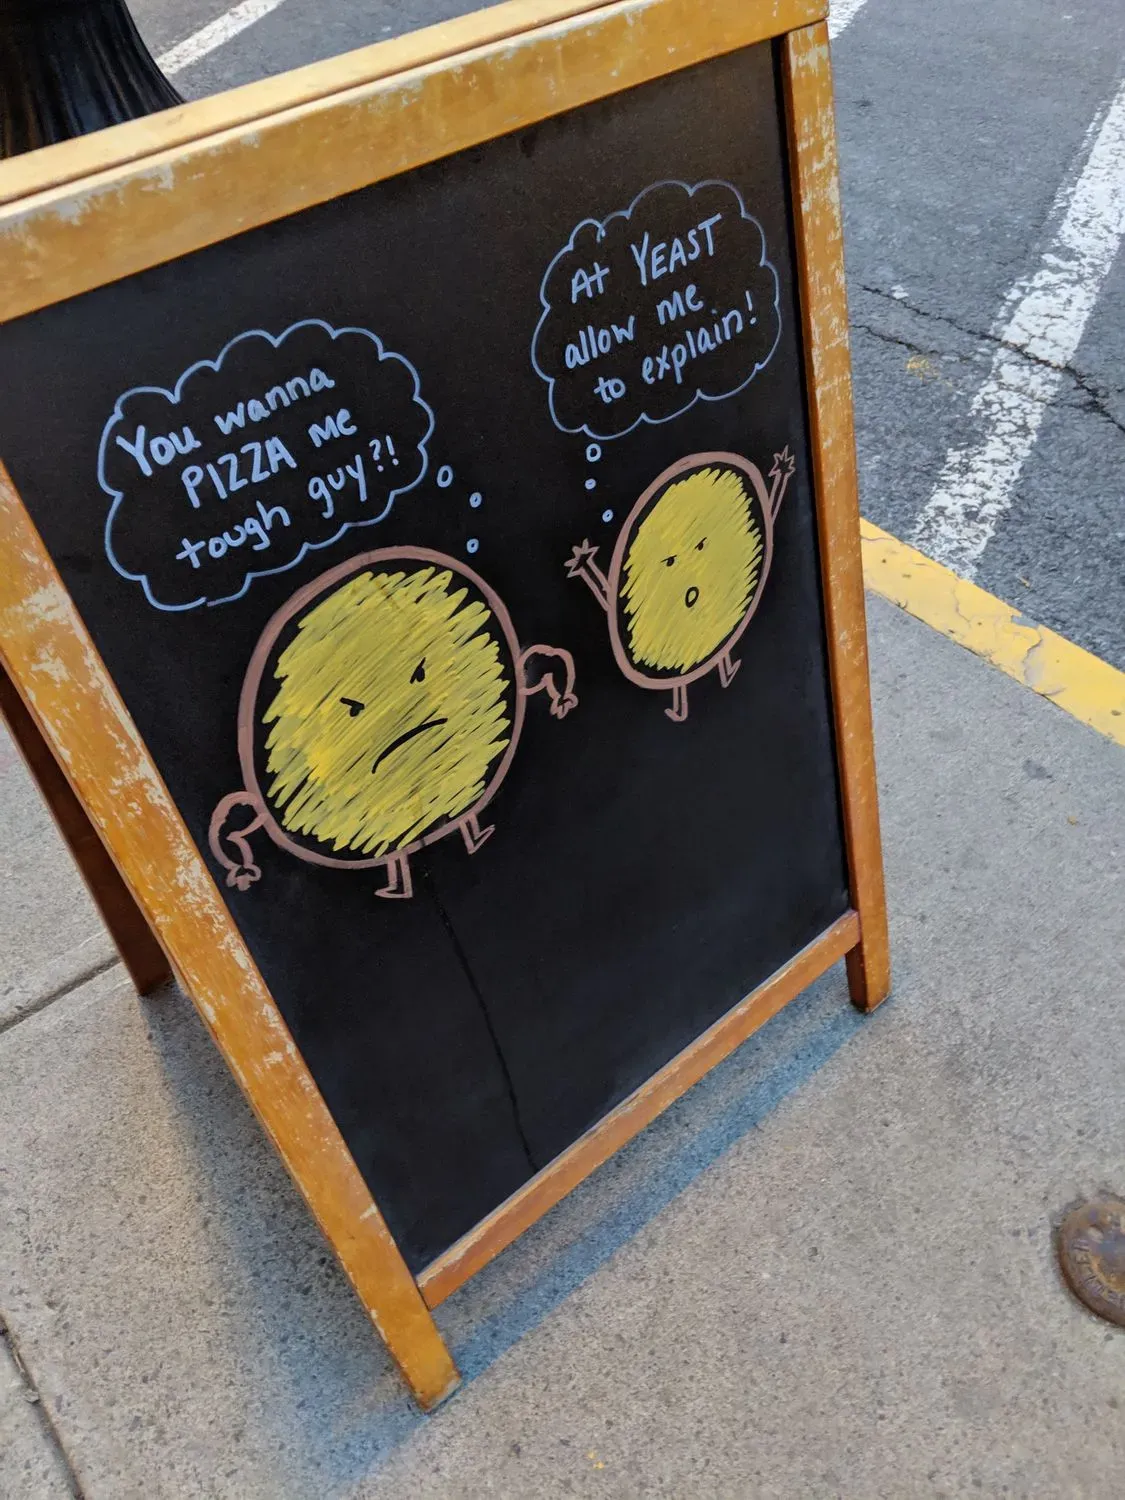 You wanna
PIZZA me
tough guy?!
At YEAST
allow me
to explain!